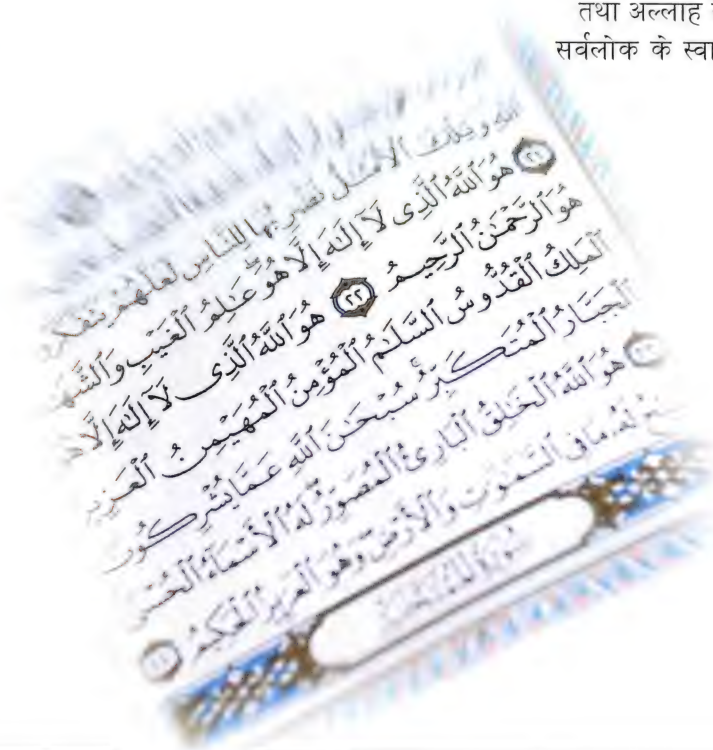 तथा अल्लाह
सर्वलोक के स्वा
ٱللَّهِ وَتِلْكَ ٱلْأَمْثَـٰلُ نَضْرِبُهَا لِلنَّاسِ لَعَلَّهُمْ يَتَفَكَّرُو
٢١ هُوَ ٱللَّهُ ٱلَّذِى لَآ إِلَـٰهَ إِلَّا هُوَ عَـٰلِمُ ٱلْغَيْبِ وَٱلشَّهَـ
هُوَ ٱلرَّحْمَـٰنُ ٱلرَّحِيمُ ٢٢ هُوَ ٱللَّهُ ٱلَّذِى لَآ إِلَـٰهَ إِلَّا
ٱلْمَلِكُ ٱلْقُدُّوسُ ٱلسَّلَـٰمُ ٱلْمُؤْمِنُ ٱلْمُهَيْمِنُ ٱلْعَزِيز
ٱلْجَبَّارُ ٱلْمُتَكَبِّرُ سُبْحَـٰنَ ٱللَّهِ عَمَّا يُشْرِكُونَ
هُوَ ٱللَّهُ ٱلْخَـٰلِقُ ٱلْبَارِئُ ٱلْمُصَوِّرُ لَهُ ٱلْأَسْمَآءُ ٱلْحُسْنَـ
لَهُۥ مَا فِى ٱلسَّمَـٰوَٰتِ وَٱلْأَرْضِ وَهُوَ ٱلْعَزِيزُ ٱلْحَكِيمُ